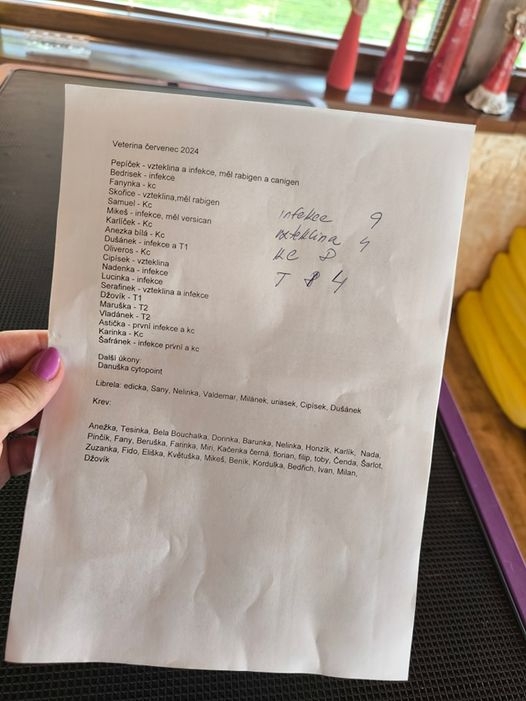 Veterina červenec 2024
Pepíček - vzteklina a infekce, měl rabigen a canigen
Bedrisek - infekce
Fanynka - kc
Skořice - vzteklina,měl rabigen
Samuel - Kc
Mikeš - infekce, měl versican
Karlíček - Kc
Anezka bílá - Kc
Dušánek - infekce a T1
Oliveros - Kc
Cipísek - vzteklina
Nadenka - infekce
Lucinka - infekce
Serafinek - vzteklina a infekce
Džovík - T1
Maruška - T2
Vladánek - T2
Astička - první infekce a kc
Karinka - Kc
Šafránek - infekce první a kc
infekce 9
vzteklina 4
KC 8
T 4
Další úkony:
Danuška cytopoint
Librela: edicka, Sany, Nelinka, Valdemar, Milánek, uriasek, Cipísek, Dušánek
Krev:
Anežka, Tesinka, Bela Bouchalka, Dorinka, Barunka, Nelinka, Honzík, Karlík, Nada,
Pinčík, Fany, Beruška, Farinka, Miri, Kačenka černá, florian, filip, toby, Čenda, Šarlot,
Zuzanka, Fido, Eliška, Květuška, Mikeš, Beník, Kordulka, Bedřich, Ivan, Milan,
Džovík